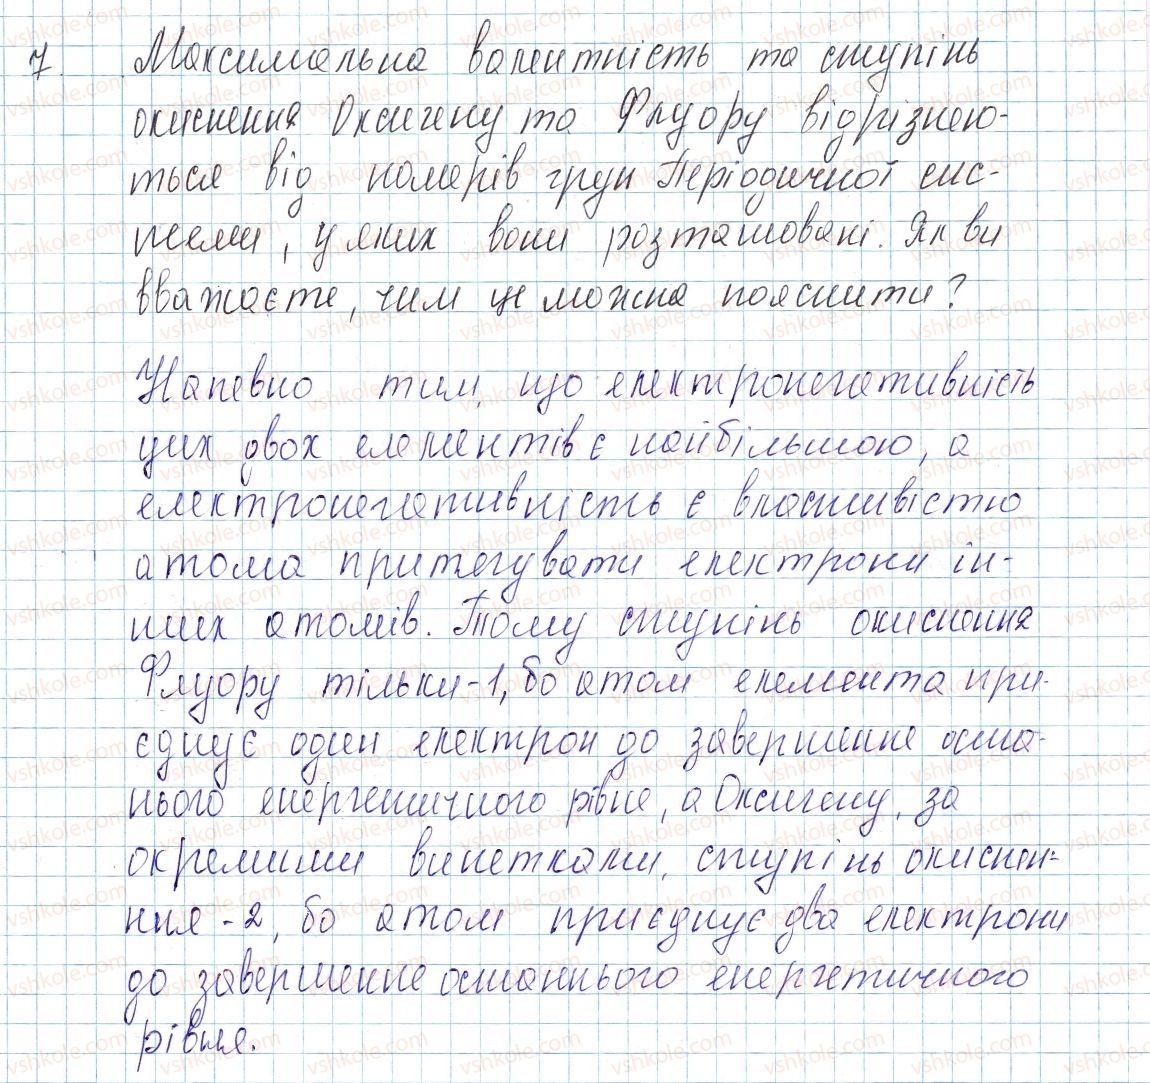 7. Максимальна валентність та ступінь
окиснення Оксигену та Флуору відрізняю-
ться від номерів груп Періодичної сис-
теми, у яких вони розташовані. Як ви
вважаєте, чим це можна пояснити?
Напевно тим, що електронегативність
цих двох елементів є найбільшою, а
електронегативність є властивістю
атома притягувати електрони ін-
ших атомів. Тому ступінь окиснення
Флуору тільки -1, бо атом елемента при-
єднує один електрон до завершення оста-
нього енергетичного рівня, а Оксигену, за
окремими винятками, ступінь окиснен-
ння -2, бо атом приєднує два електрони
до завершення останнього енергетичного
рівня.